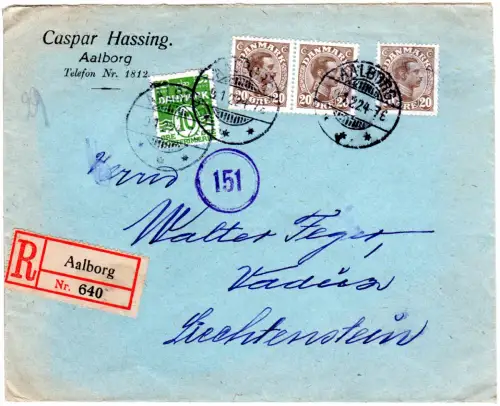 Caspar Hassing.
Aalborg
Telefon Nr. 1812.
DANMARK
20 ØRE 20
DANMARK
20 ØRE 20
DANMARK
20 ØRE 20
DANMARK
10
AALBORG
2.24
151
Herrn
Walter Feger,
Vaduz
Liechtenstein
R
Aalborg
Nr. 640